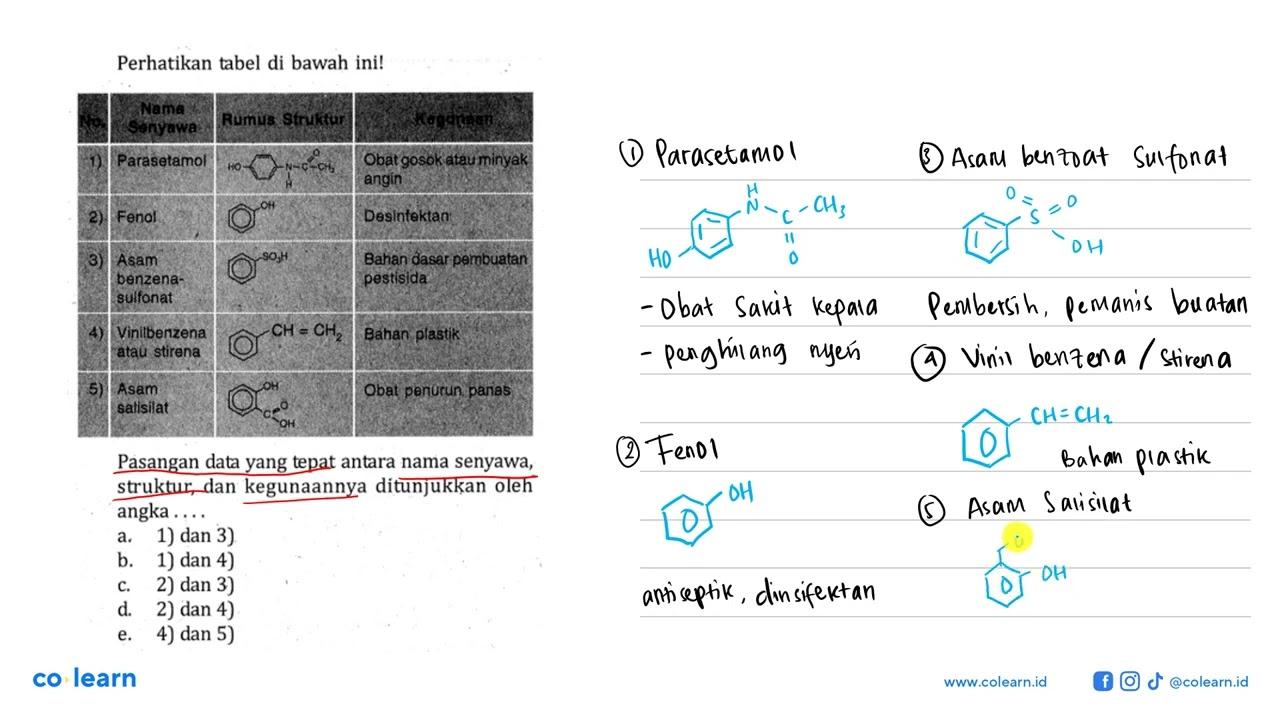 Perhatikan tabel di bawah ini!
No. Nama Senyawa Rumus Struktur Kegunaan
1) Parasetamol HO N-C-CH3 O H Obat gosok atau minyak angin
2) Fenol OH Desinfektan
3) Asam benzena-sulfonat SO3H Bahan dasar pembuatan pestisida
4) Vinilbenzena atau stirena CH = CH2 Bahan plastik
5) Asam salisilat OH C O OH Obat penurun panas
Pasangan data yang tepat antara nama senyawa,
struktur, dan kegunaannya ditunjukkan oleh
angka . . . .
a. 1) dan 3)
b. 1) dan 4)
c. 2) dan 3)
d. 2) dan 4)
e. 4) dan 5)
① Parasetamol
H
N - C - CH3
HO O
- Obat Sakit Kepala
- penghilang nyeri
② Fenol
OH
antiseptik, dinsifektan
③ Asam benzoat Sulfonat
O O
S
OH
Pembersih, pemanis buatan
④ Vinil benzena / Stirena
CH=CH2
Bahan plastik
⑤ Asam Salisilat
OH
co learn
www.colearn.id @colearn.id